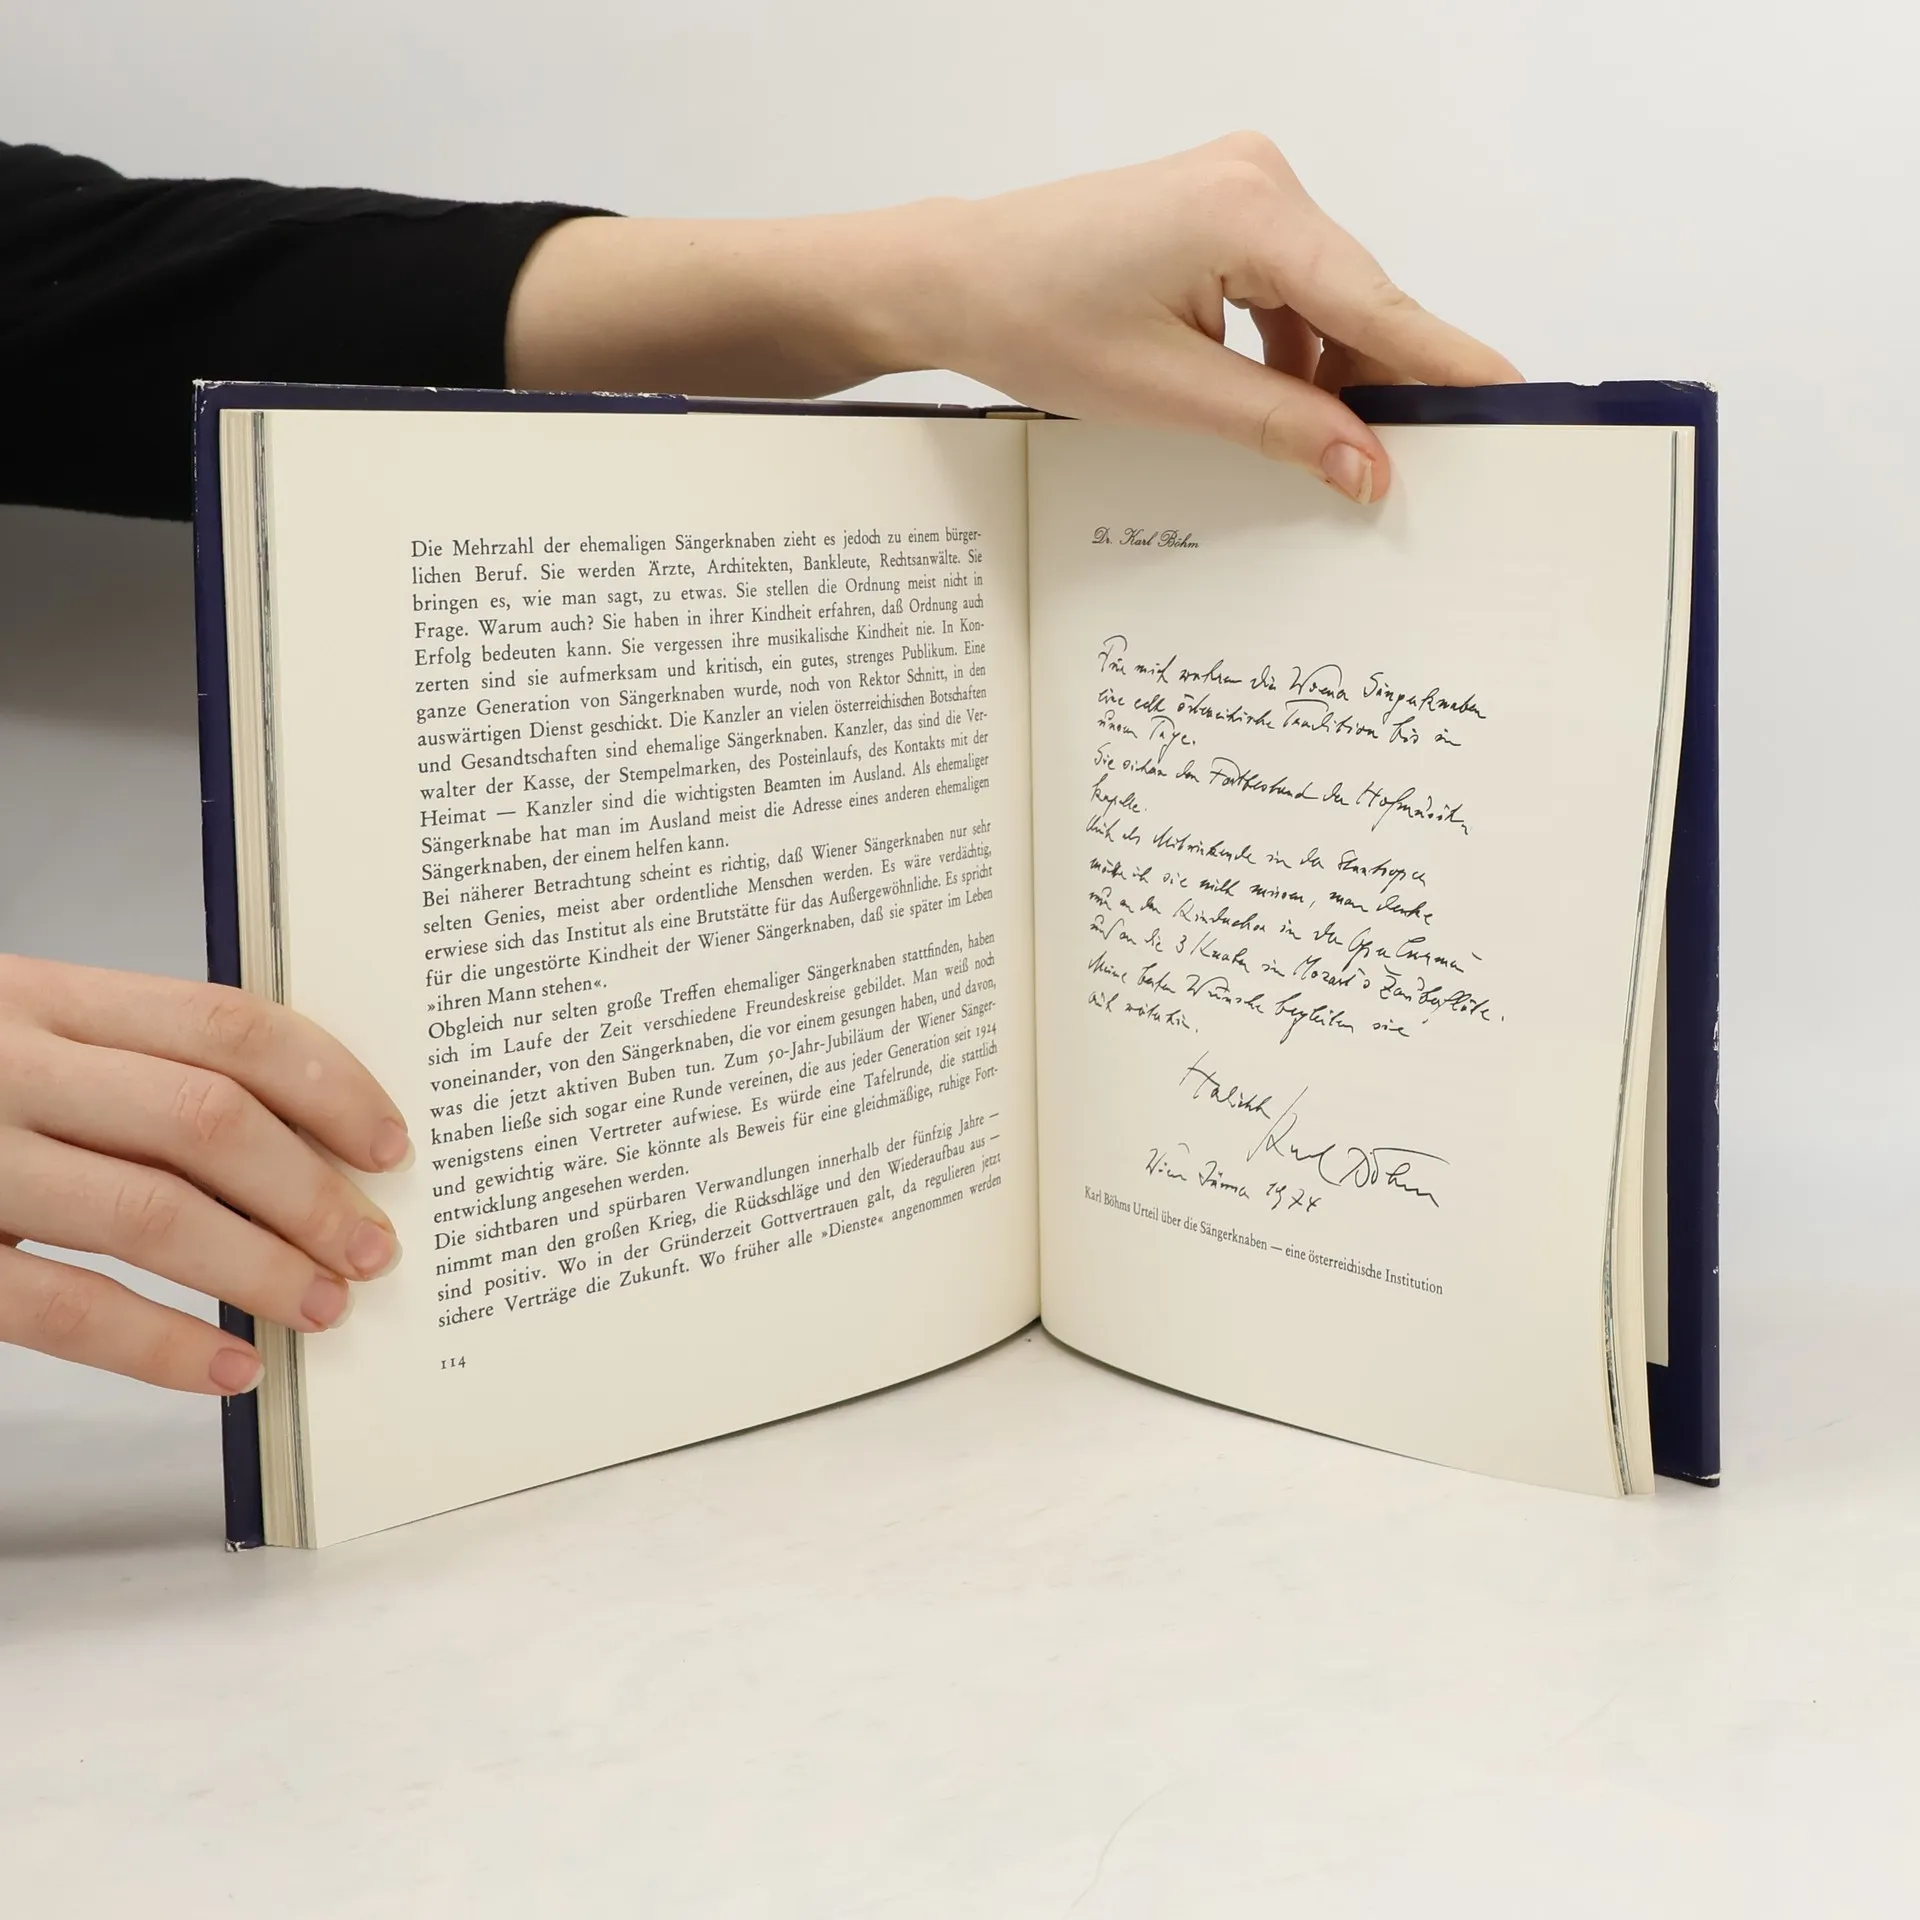 Die Mehrzahl der ehemaligen Sängerknaben zieht es jedoch zu einem bürger-
lichen Beruf. Sie werden Ärzte, Architekten, Bankleute, Rechtsanwälte. Sie
bringen es, wie man sagt, zu etwas. Sie stellen die Ordnung meist nicht in
Frage. Warum auch? Sie haben in ihrer Kindheit erfahren, daß Ordnung auch
Erfolg bedeuten kann. Sie vergessen ihre musikalische Kindheit nie. In Kon-
zerten sind sie aufmerksam und kritisch, ein gutes, strenges Publikum. Eine
ganze Generation von Sängerknaben wurde, noch von Rektor Schnitt, in den
auswärtigen Dienst geschickt. Die Kanzler an vielen österreichischen Botschaften
und Gesandtschaften sind ehemalige Sängerknaben. Kanzler, das sind die Ver-
walter der Kasse, der Stempelmarken, des Posteinlaufs, des Kontakts mit der
Heimat — Kanzler sind die wichtigsten Beamten im Ausland. Als ehemaliger
Sängerknabe hat man im Ausland meist die Adresse eines anderen ehemaligen
Sängerknaben, der einem helfen kann.
Bei näherer Betrachtung scheint es richtig, daß Wiener Sängerknaben nur sehr
selten Genies, meist aber ordentliche Menschen werden. Es wäre verdächtig,
erwiese sich das Institut als eine Brutstätte für das Außergewöhnliche. Es spricht
für die ungestörte Kindheit der Wiener Sängerknaben, daß sie später im Leben
»ihren Mann stehen«.
Obgleich nur selten große Treffen ehemaliger Sängerknaben stattfinden, haben
sich im Laufe der Zeit verschiedene Freundeskreise gebildet. Man weiß noch
voneinander, von den Sängerknaben, die vor einem gesungen haben, und davon,
was die jetzt aktiven Buben tun. Zum 50-Jahr-Jubiläum der Wiener Sänger-
knaben ließe sich sogar eine Runde vereinen, die aus jeder Generation seit 1924
wenigstens einen Vertreter aufwiese. Es würde eine Tafelrunde, die stattlich
und gewichtig wäre. Sie könnte als Beweis für eine gleichmäßige, ruhige Fort-
entwicklung angesehen werden.
Die sichtbaren und spürbaren Verwandlungen innerhalb der fünfzig Jahre —
nimmt man den großen Krieg, die Rückschläge und den Wiederaufbau aus —
sind positiv. Wo in der Gründerzeit Gottvertrauen galt, da regulieren jetzt
sichere Verträge die Zukunft. Wo früher alle »Dienste« angenommen werden
114
Dr. Karl Böhm
Für mich wahren die Wiener Sängerknaben
eine echt österreichische Tradition bis in
unsere Tage.
Sie sichern den Fortbestand der Hofmusik
kapelle.
Auch als Mitwirkende in der Staatsoper
möchte ich sie nicht missen, man denke
nur an den Kinderchor in der Oper Carmen
und an die 3 Knaben in Mozart's Zauberflöte.
Meine besten Wünsche begleiten sie
auch weiterhin.
Herzlichst
Karl Böhm
Wien Jänner 1974
Karl Böhms Urteil über die Sängerknaben — eine österreichische Institution